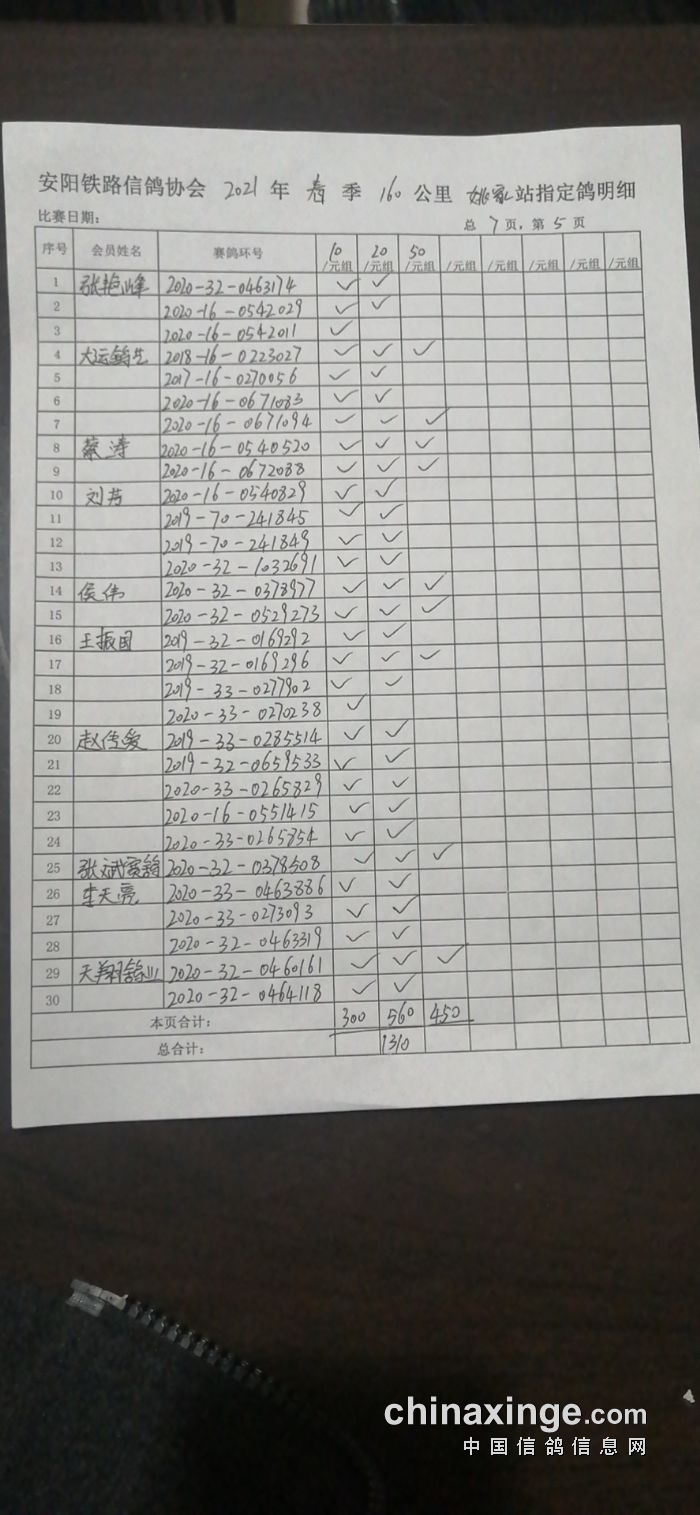 安阳铁路信鸽协会 2021 年 春 季 160 公里 姚家 站指定鸽明细
比赛日期: 总 7 页, 第 5 页
序号 会员姓名 赛鸽环号 10/元组 20/元组 50/元组 /元组 /元组 /元组 /元组 /元组
1 张艳峰 2020-32-0463174 ✓ ✓
2 2020-16-0542029 ✓ ✓
3 2020-16-0542011 ✓
4 大运鸽先 2018-16-0223027 ✓ ✓ ✓
5 2017-16-0270056 ✓ ✓
6 2020-16-0671083 ✓ ✓
7 2020-16-0671094 ✓ ✓ ✓
8 蔡涛 2020-16-0540520 ✓ ✓ ✓
9 2020-16-0672088 ✓ ✓ ✓
10 刘芳 2020-16-0540829 ✓ ✓
11 2019-70-241845 ✓ ✓
12 2019-70-241849 ✓ ✓
13 2020-32-1032691 ✓ ✓
14 侯伟 2020-32-0378977 ✓ ✓ ✓
15 2020-32-0529273 ✓ ✓ ✓
16 王振国 2019-32-0169292 ✓ ✓
17 2019-32-0169296 ✓ ✓ ✓
18 2019-33-0277902 ✓ ✓
19 2020-33-0270238 ✓
20 赵传爱 2019-33-0285514 ✓ ✓
21 2019-32-0659533 ✓ ✓
22 2020-33-0265829 ✓ ✓
23 2020-16-0551415 ✓ ✓
24 2020-33-0265854 ✓ ✓
25 张斌赛鸽 2020-32-0378508 ✓ ✓ ✓
26 李天亮 2020-33-0463886 ✓ ✓
27 2020-33-0273093 ✓ ✓
28 2020-32-0463319 ✓ ✓
29 天翔鸽业 2020-32-0460161 ✓ ✓ ✓
30 2020-32-0464118 ✓ ✓
本页合计: 300 560 450
总合计: 1310
chinaxinge.com
中国信鸽信息网